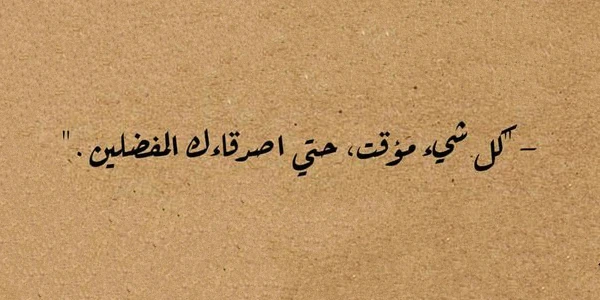 – "كل شيء مؤقت، حتي اصدقاءك المفضلين . "